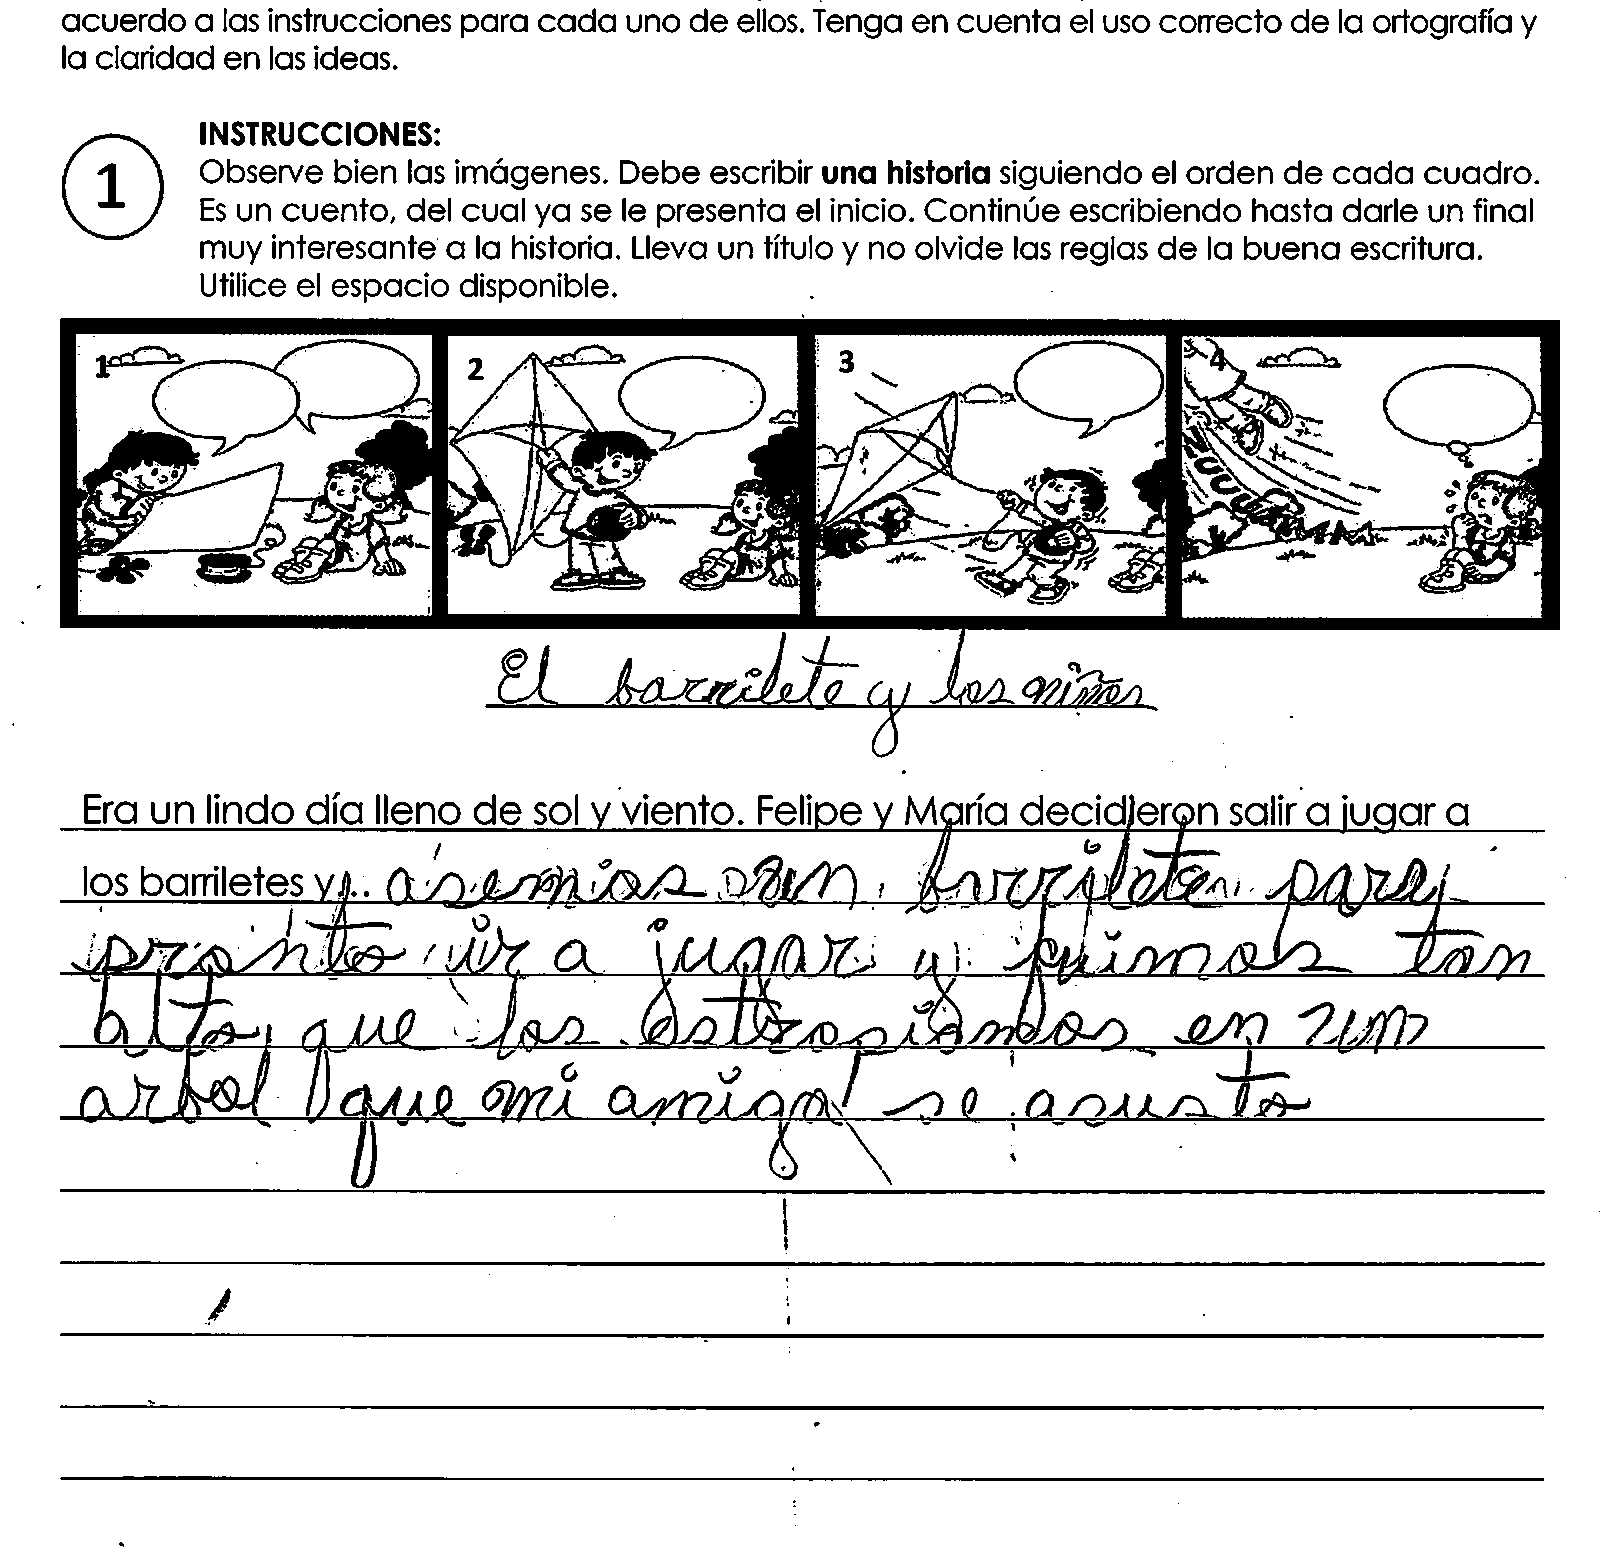 acuerdo a las instrucciones para cada uno de ellos. Tenga en cuenta el uso correcto de la ortografía y
la claridad en las ideas.
1
INSTRUCCIONES:
Observe bien las imágenes. Debe escribir una historia siguiendo el orden de cada cuadro.
Es un cuento, del cual ya se le presenta el inicio. Continúe escribiendo hasta darle un final
muy interesante a la historia. Lleva un título y no olvide las reglas de la buena escritura.
Utilice el espacio disponible.
1 2 3 4
ZUUUUUMMM
El barrilete y los niños
Era un lindo día lleno de sol y viento. Felipe y María decidieron salir a jugar a
los barriletes y... asemios un barrilete para
pronto ir a jugar y fuimos tan
alto que los en un
arbol que mi amiga se asusto